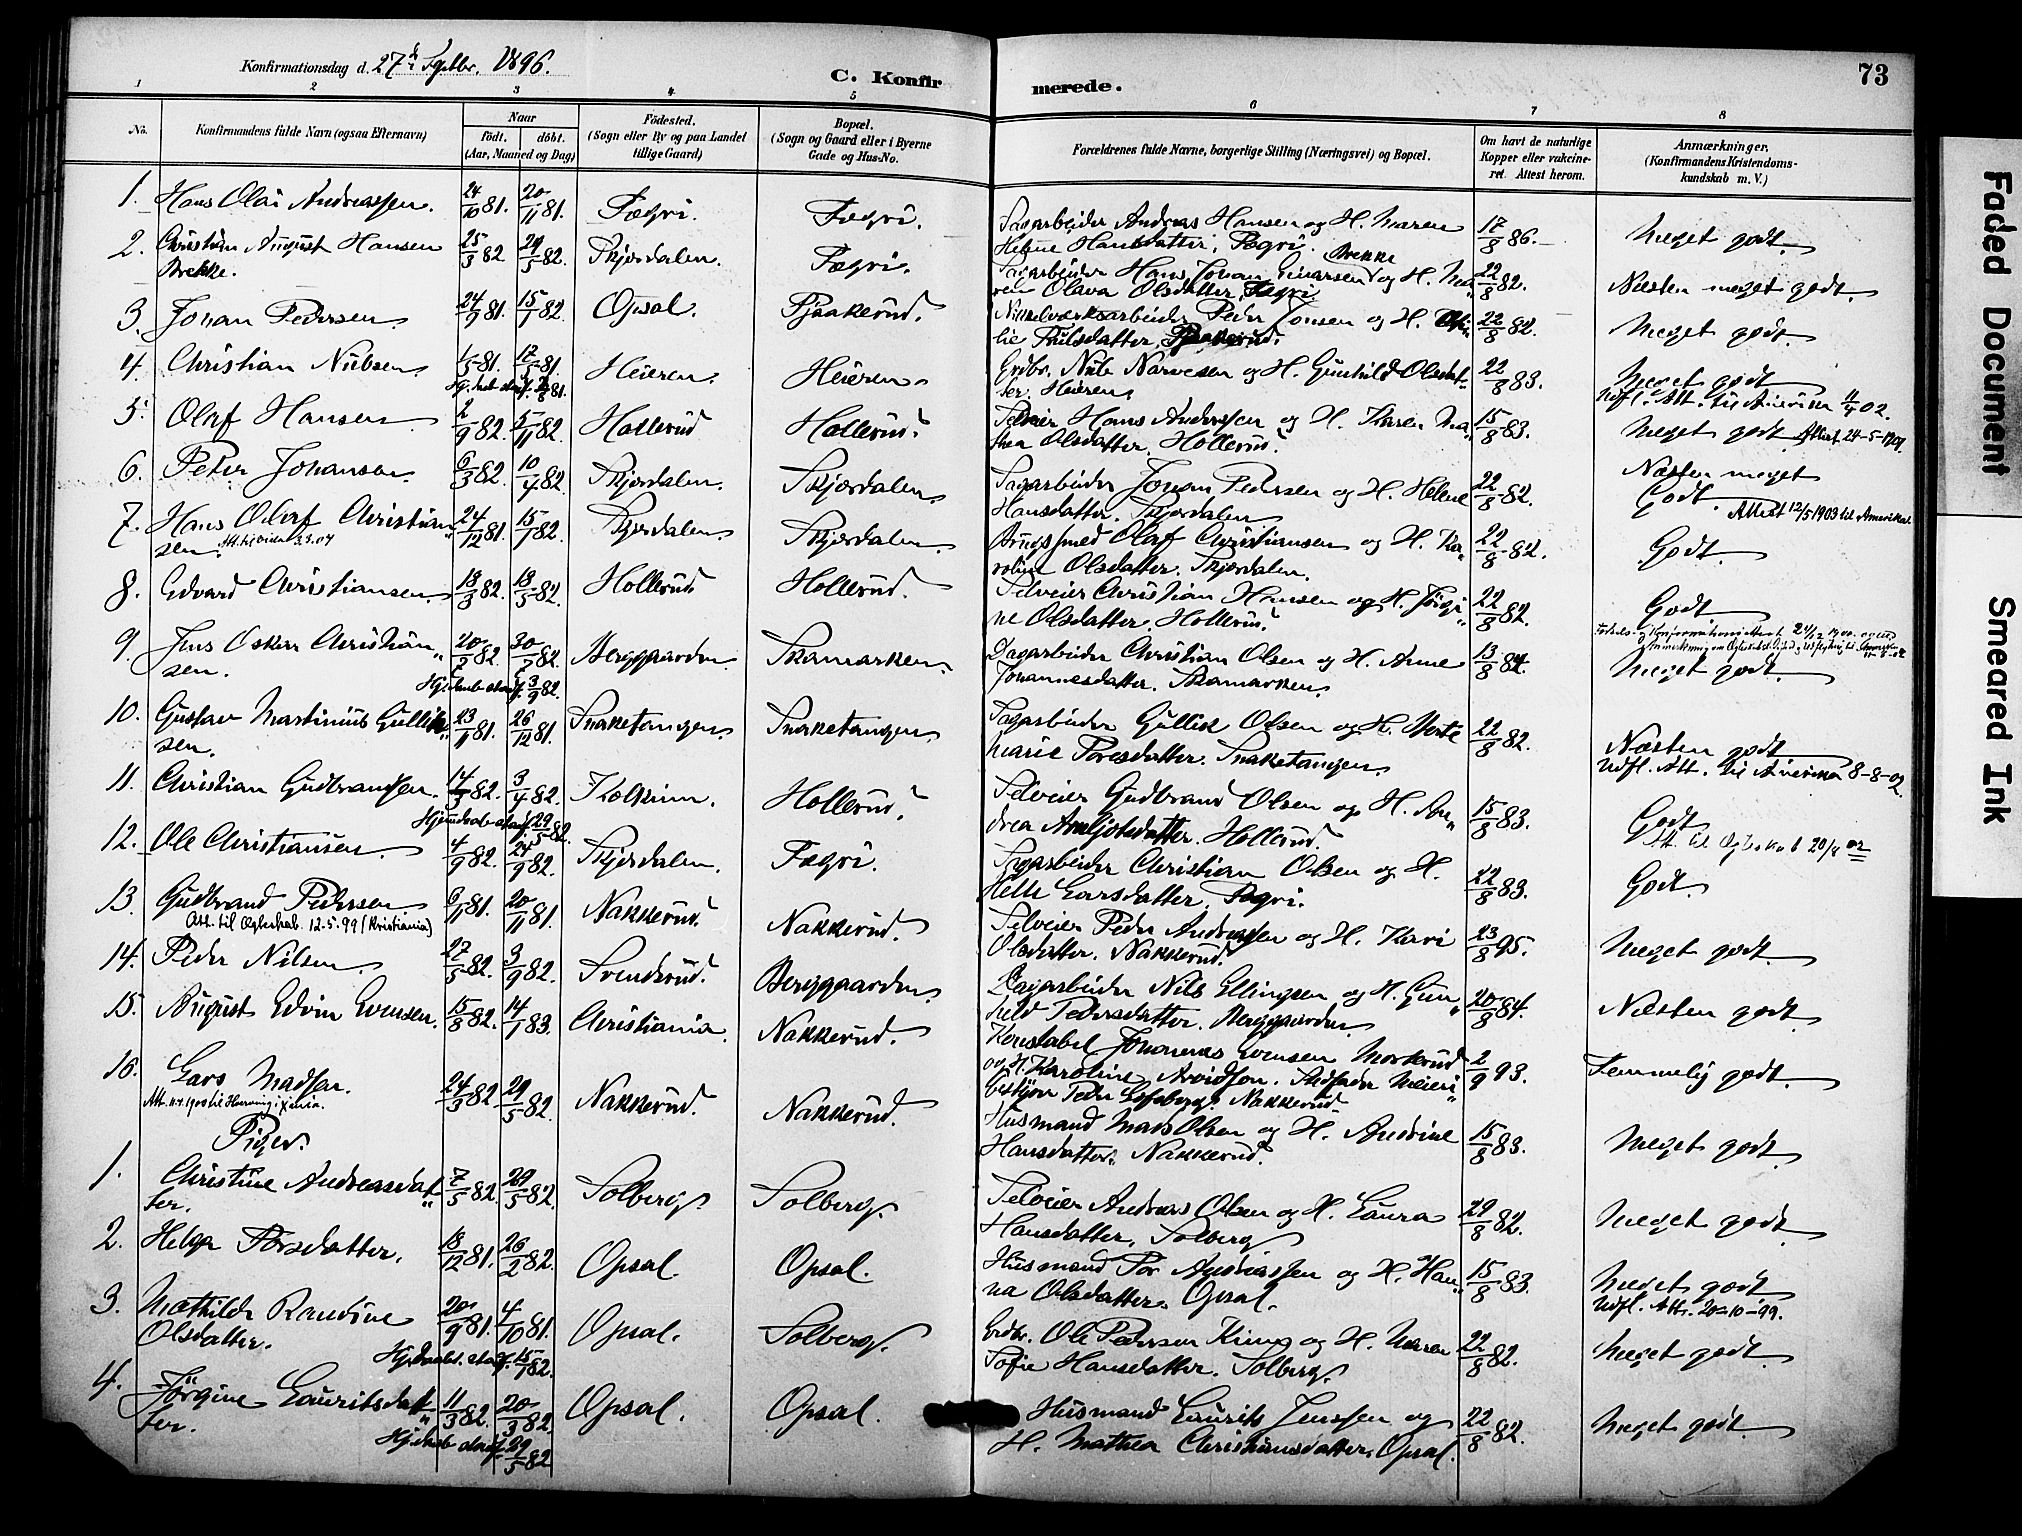 Konfirmationsdag d. 27de Septbr. 1896.
C. Konfirmerede.
73
1 2 3 4 5 6 7 8
No.
Konfirmandens fulde Navn (ogsaa Efternavn)
Naar
födt. döbt.
(Aar, Maaned og Dag)
Födested.
(Sogn eller By og paa Landet
tillige Gaard)
Bopæl.
(Sogn og Gaard eller i Byerne
Gade og Hus-No.
Forældrenes fulde Navne, borgerlige Stilling (Næringsvei) og Bopæl.
Om havt de naturlige
Kopper eller vakcine-
ret. Attest herom.
Anmærkninger.
(Konfirmandens Kristendoms-
kundskab m. V.)
1. Hans Olai Andreassen. 24/10 81. 20/11 81. Fægri. Fægri. Sagarbeider Andreas Hansen og H. Maren 17/8 86. Meget godt.
Helene Hansdatter, Fægri.
2. Christian August Hansen 25/3 82 29/5 82. Skjærdalen. Fægri. Sagarbeider Hans Johan Einarsen Brekke og H. Ma- 22/8 82. Næsten meget godt.
Brekke. ren Olava Olsdatter, Fægri
3. Johan Pedersen. 24/9 81. 15/1 82. Opsal. Pjaakerud. Nikkelværksarbeider Peder Jonsen og H. 22/8 82. Meget godt.
4. Christian Nielsen. 1/5 81. 17/5 81. Heieren. Heieren. Grdbr. Niels Narvesen og H. Gunhild Olsdat- 22/8 83. Meget godt
Hj. daab stadf. ter. Heieren. Udfl. Att. til Amerika 11/4 02.
5. Olaf Hansen 2/9 82. 5/11 82. Hollerud Hollerud. Selveier Hans Anderssen og H. Karen Ma- 15/8 83. Meget godt. Attest 24-5-1901
thea Olsdatter. Hollerud.
6. Peter Johansen 6/3 82. 10/4 82. Skjærdalen. Skjærdalen. Sagarbeider Johan Pedersen og H. Helene 22/8 82. Næsten meget
Hansdatter. Skjærdalen Godt. Attest 12/5 1903 til Amerika
7. Hans Olaf Christian- 24/12 81. 15/1 82. Skjærdalen. Skjærdalen. Brugssmed Olaf Christiansen og H. Ka- 22/8 82. Godt.
sen. 3.3.04 roline Olsdatter. Skjærdalen.
8. Edvard Christiansen. 18/3 82. 18/5 82. Hollerud Hollerud. Selveier Christian Hansen og H. Jørgi- 22/8 82. Godt
ne Olsdatter. Hollerud.
9. Jens Oskar Christian- 20/7 82. 30/7 82. Berggaarden Skamarken. Dagarbeider Christian Olsen og H. Anne 13/8 84. Meget godt.
sen. Hj. daab stadf. 3/9 82. Johannesdatter. Skamarken.
10. Gustav Martinius Gullik- 23/11 81. 26/12 81. Snaketangen. Snaketangen. Sagarbeider Gullik Olsen og H. Berte 22/8 82. Næsten godt
sen. Marie Toresdatter. Snaketangen. Udfl. Att. til Amerika 8-8-02.
11. Christian Gudbrandsen. 14/3 82. 3/4 82. Hollerud. Selveier Gudbrand Olsen og H. An- 15/8 83. Godt
Hjemdaab stadf. 29/5 82. drea Hollerud. Att. til Ægteskab 20/8 02
12. Ole Christiansen. 4/9 82. 24/9 82. Skjærdalen. Fægri. Sagarbeider Christian Olsen og H. 22/8 83. Godt
Helle Larsdatter, Fægri.
13. Gudbrand Pedersen 6/11 81. 20/11 81. Nakkerud. Nakkerud. Selveier Peder Andreassen og H. Kari 23/8 95. Meget godt.
Att. til Ægteskab. 12.5.99 (Kristiania) Olsdatter. Nakkerud.
14. Peder Nilsen. 27/5 82. 3/9 82. Svendsrud. Berggaarden. Dagarbeider Nils Ellingsen og H. Gun- 20/8 84. Næsten godt.
hild Pedersdatter. Berggaarden
15. August Edvin Evensen. 15/8 82. 14/1 83. Christiania. Nakkerud. Konstabel Johannes Evensen Morkerud 2/9 93. Temmelig godt.
og H. Karoline Arvidson. Stedfader Meieri-
bestyrer Peder Nakkerud.
16. Lars Madsen. 24/3 82. 29/5 82. Nakkerud. Nakkerud. Husmand Mads Olsen og H. Andrine 15/8 83. Meget godt.
Hansdatter. Nakkerud.
Piger.
1. Christine Andreasdat- 7/5 82. 29/5 82. Solberg. Solberg. Selveier Andreas Olsen og H. Laura 29/8 82. Meget godt.
ter. Hansdatter, Solberg.
2. Helga Torsdatter. 18/12 81. 26/2 82. Opsal. Opsal. Husmand Tor Andreassen og H. Han- 15/8 83. Meget godt.
na Olsdatter. Opsal. Udfl. Att. 20-10-99.
3. Mathilde Randine 20/9 81. 4/10 81. Opsal. Solberg. Grdbr. Ole Pedersen og H. Maren 22/8 82. Meget godt.
Olsdatter. Hj. daab st. stadf. 15/1 82. Sofie Hansdatter. Solberg.
4. Jørgine Lauritsdat- 11/3 82. 20/3 82. Opsal. Opsal. Husmand Laurits Jenssen og 22/8 82. Meget godt.
ter. Hj. daab stadf. 29/5 82 H. Mathea Christiansdatter, Opsal.
Faded Document
Smeared Ink